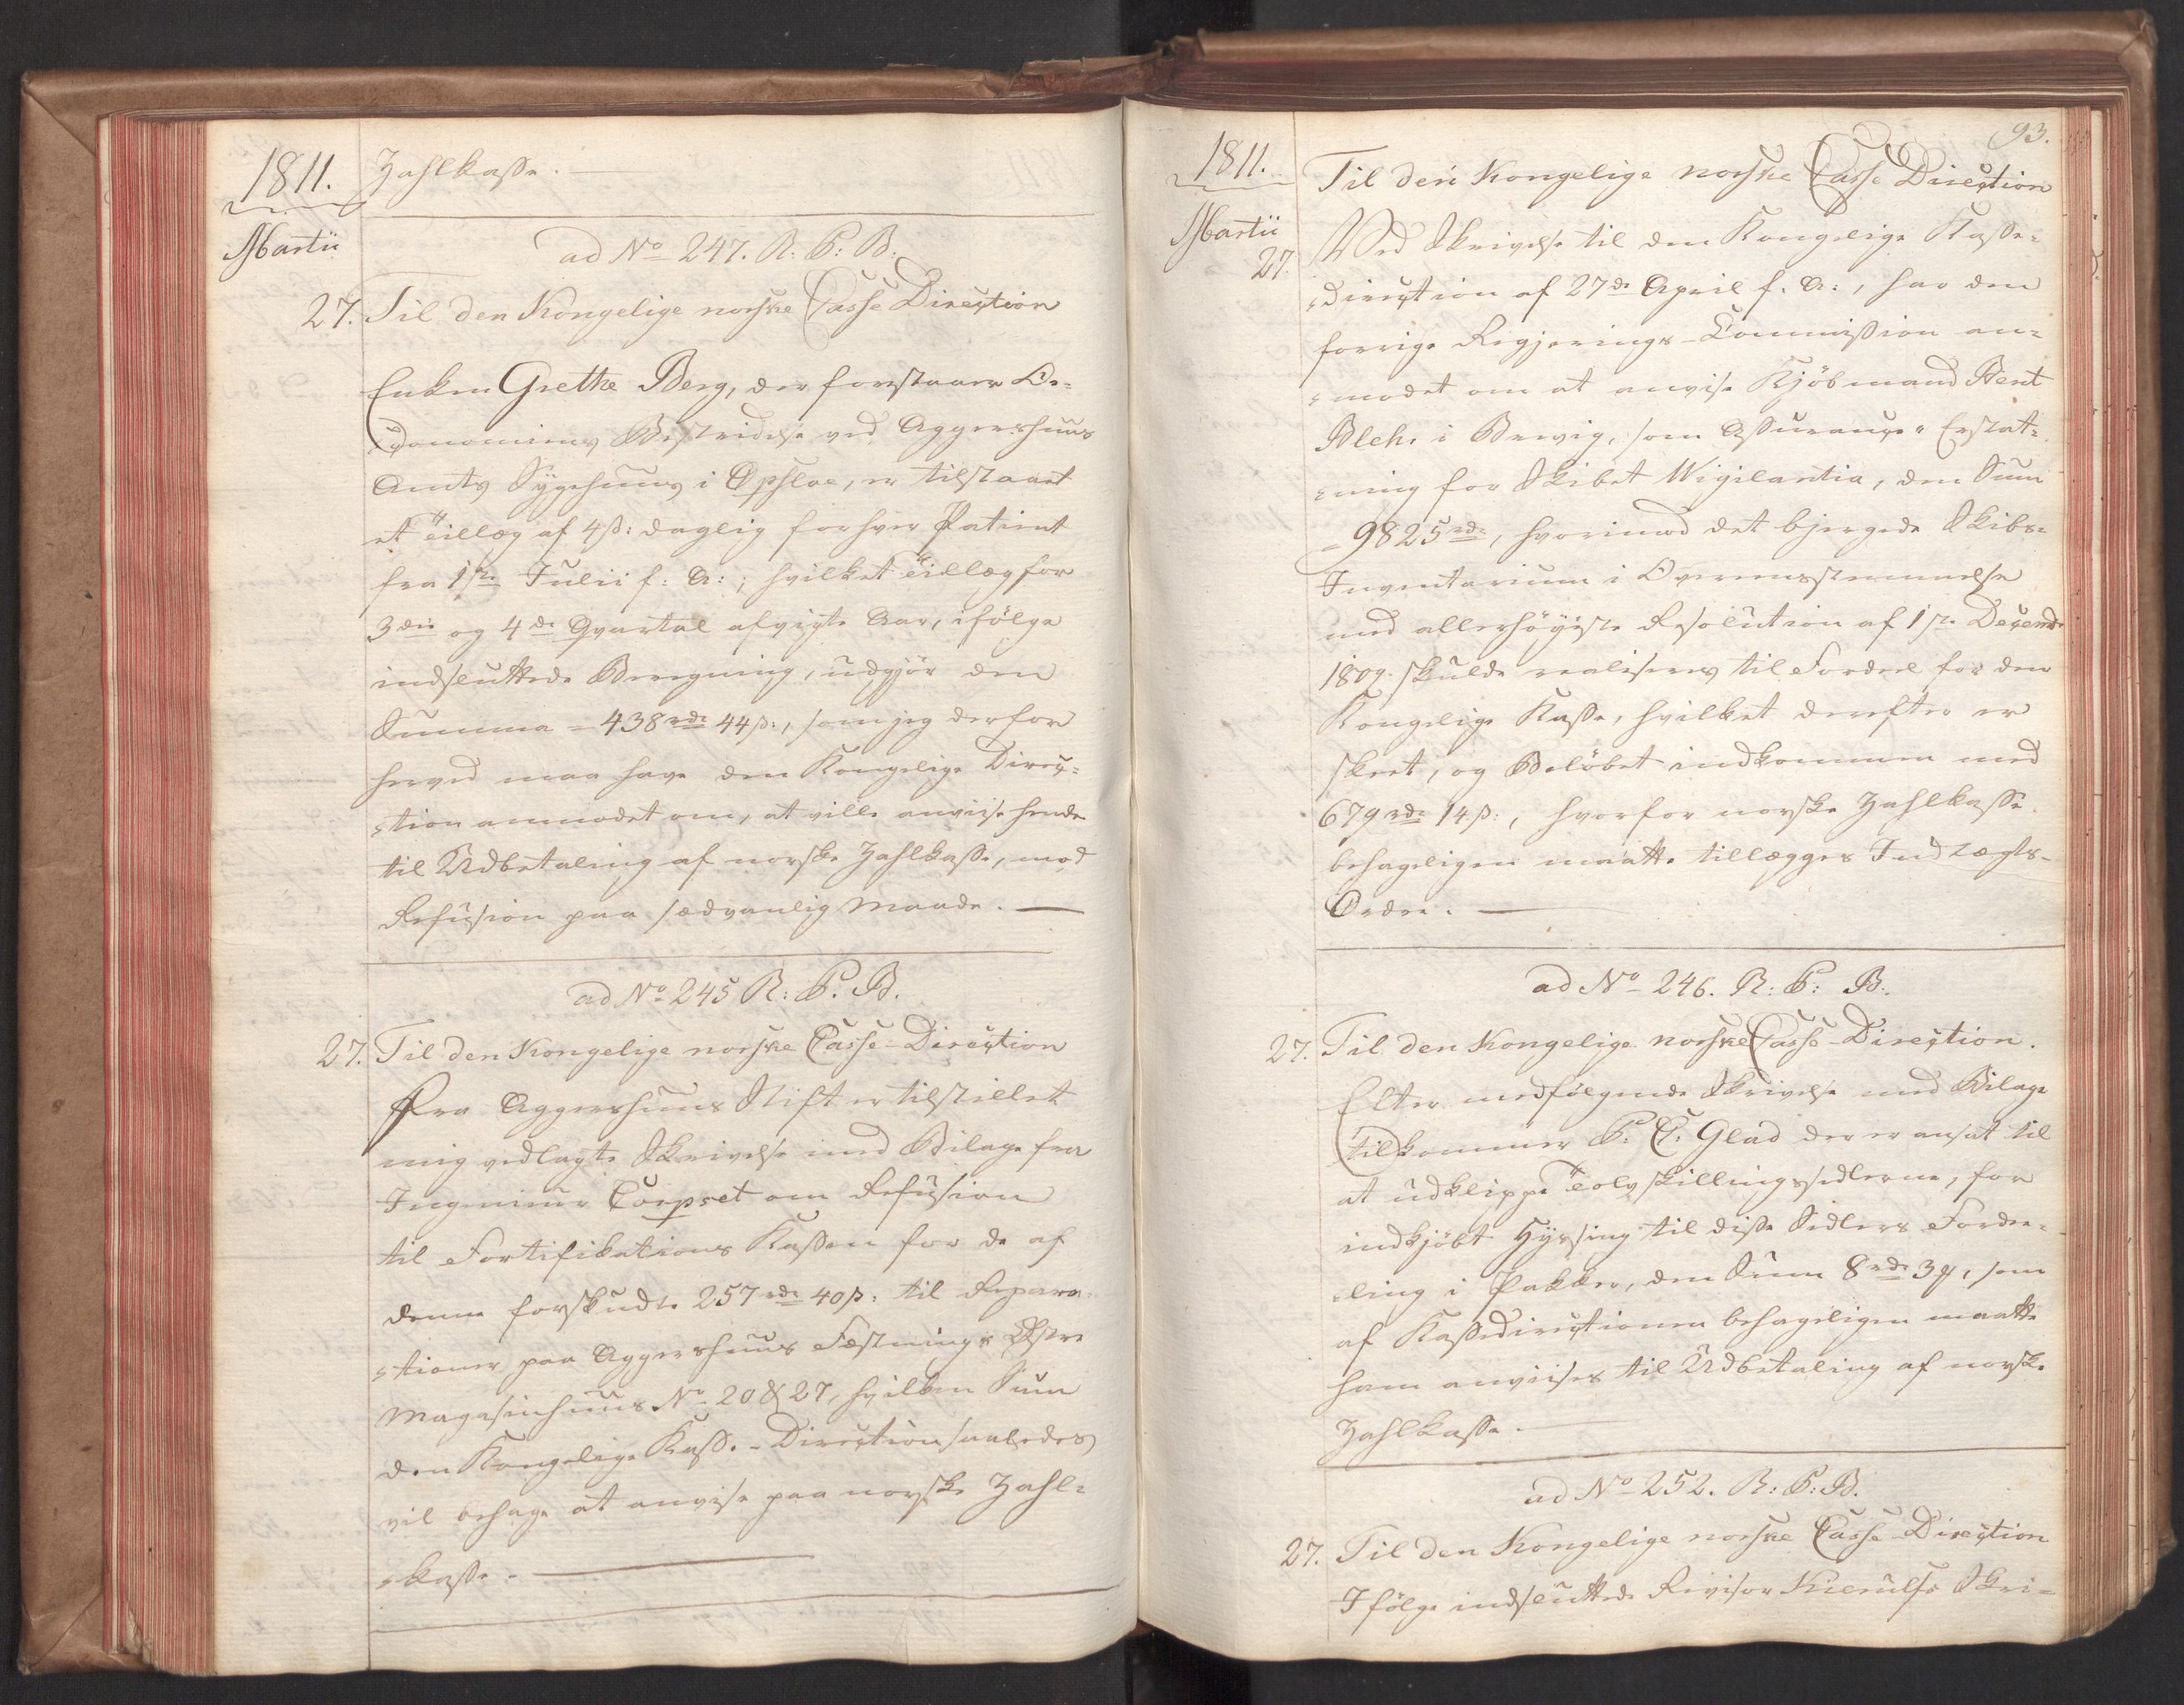 1811.
Zahlkasse.
Martii
ad No 247. R: P: B:
27. Til den Kongelige norske Casse Direction
Enken Grethe Berg, der forestaaer Oe-
conomiens Bestridelse ved Aggershuus
Amts Sygehuus i Opsloe, er tilstaaet
et Tillæg af 4ß: daglig for hver Patient
fra 1ste Julii f: A:; hvilket Tillæg for
3die og 4de Qvartal afvigte Aar, ifölge
indsluttede Beregning, udgjör den
Summa = 438rdr 44ß:, som jeg derfor
herved maa have den Kongelige Direc-
tion anmodet om, at ville anviise hende
til Udbetaling af norske Zahlkasse, mod
Refusion paa sædvanlig Maade.
ad No 245 R: P: B.
27. Til den Kongelige norske Casse-Direction
Fra Aggershuus Stift er tilstillet
mig vedlagte Skrivelse med Bilage fra
Ingenieur Corpset om Refusion
til Fortifikations Kassen for de af
denne forskudte 257rdr 40ß: til Repara-
tioner paa Aggershuus Fæstnings Østre
Magasinhuus No 20 & 27, hvilken Sum
den Kongelige Kasse-Direction saaledes
vil behage at anvise paa norske Zahl-
kasse.
93.
1811.
Martii
Til den Kongelige norske Casse Direction
27. Ved Skrivelse til den Kongelige Kasse-
direction af 27de April f: A:, har den
forrige Regjerings-Commission an-
modet om at anvise Kjöbmand Bent
Bleh. i Brevig, som Assurance-Erstat-
ning for Skibet Wigilantia, den Sum
= 9825rdr, hvorimod det bjergede Skibs-
Inventarium i Overensstemmelse
med allerhöyeste Resolution af 1ste Decembr
1809. skulde realiseres til Fordeel for den
Kongelige Kasse, hvilket derefter er
skeet, og Belöbet indkommen med
679rdr 14ß:, hvorfor norske Zahlkasse
behageligen maatte tillægges Indtægts-
Ordre.
ad No 246. R: P: B:
27. Til den Kongelige norske Casse-Direction.
Efter medfølgende Skrivelse med Bilage
tilkommer P: C: Glad der er ansat til
at udklippe Tolvskillingssedlerne, for
indkjöbt Hyssing til disse Sedlers Forde-
ling i Pakker, den Sum 8rdr 3ꝣ, som
af Kassedirectionen behageligen maatte
ham anviises til Udbetaling af norske
Zahlkasse.
ad No 252. R: P: B.
27. Til den Kongelige norske Casse-Direction
Ifölge indsluttede Revisor Kierulfs Skri-